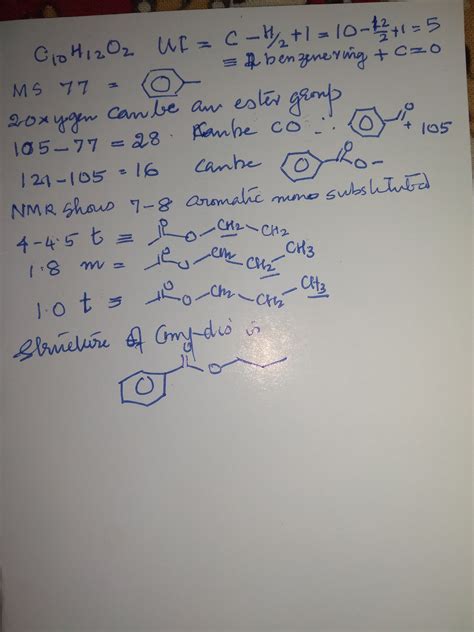 C10H12O2 UI = C - H/2 + 1 = 10 - 12/2 + 1 = 5
≡ 1 benzenering + C=O
MS 77 =
2 oxygen can be an ester group
105 - 77 = 28 can be CO ∴ C O + 105
121 - 105 = 16 can be C O O -
NMR shows 7-8 aromatic mono substituted
4-4.5 t ≡ O O CH2 CH2
1.8 m = O O CH2 CH2 CH3
1.0 t ≡ O O CH2 CH2 CH3
Structure of Compd is
O O